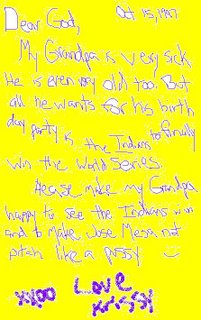 Dear God, Oct 15, 1997
My Grandpa is very sick
He is even very old too. But
all he wants for his birth
day party is the Indians to finally
win the World Series.
Please make my Grandpa
happy to see the Indians win
and to make Jose Mesa not
pitch like a pussy
XXOO Love
Krissy